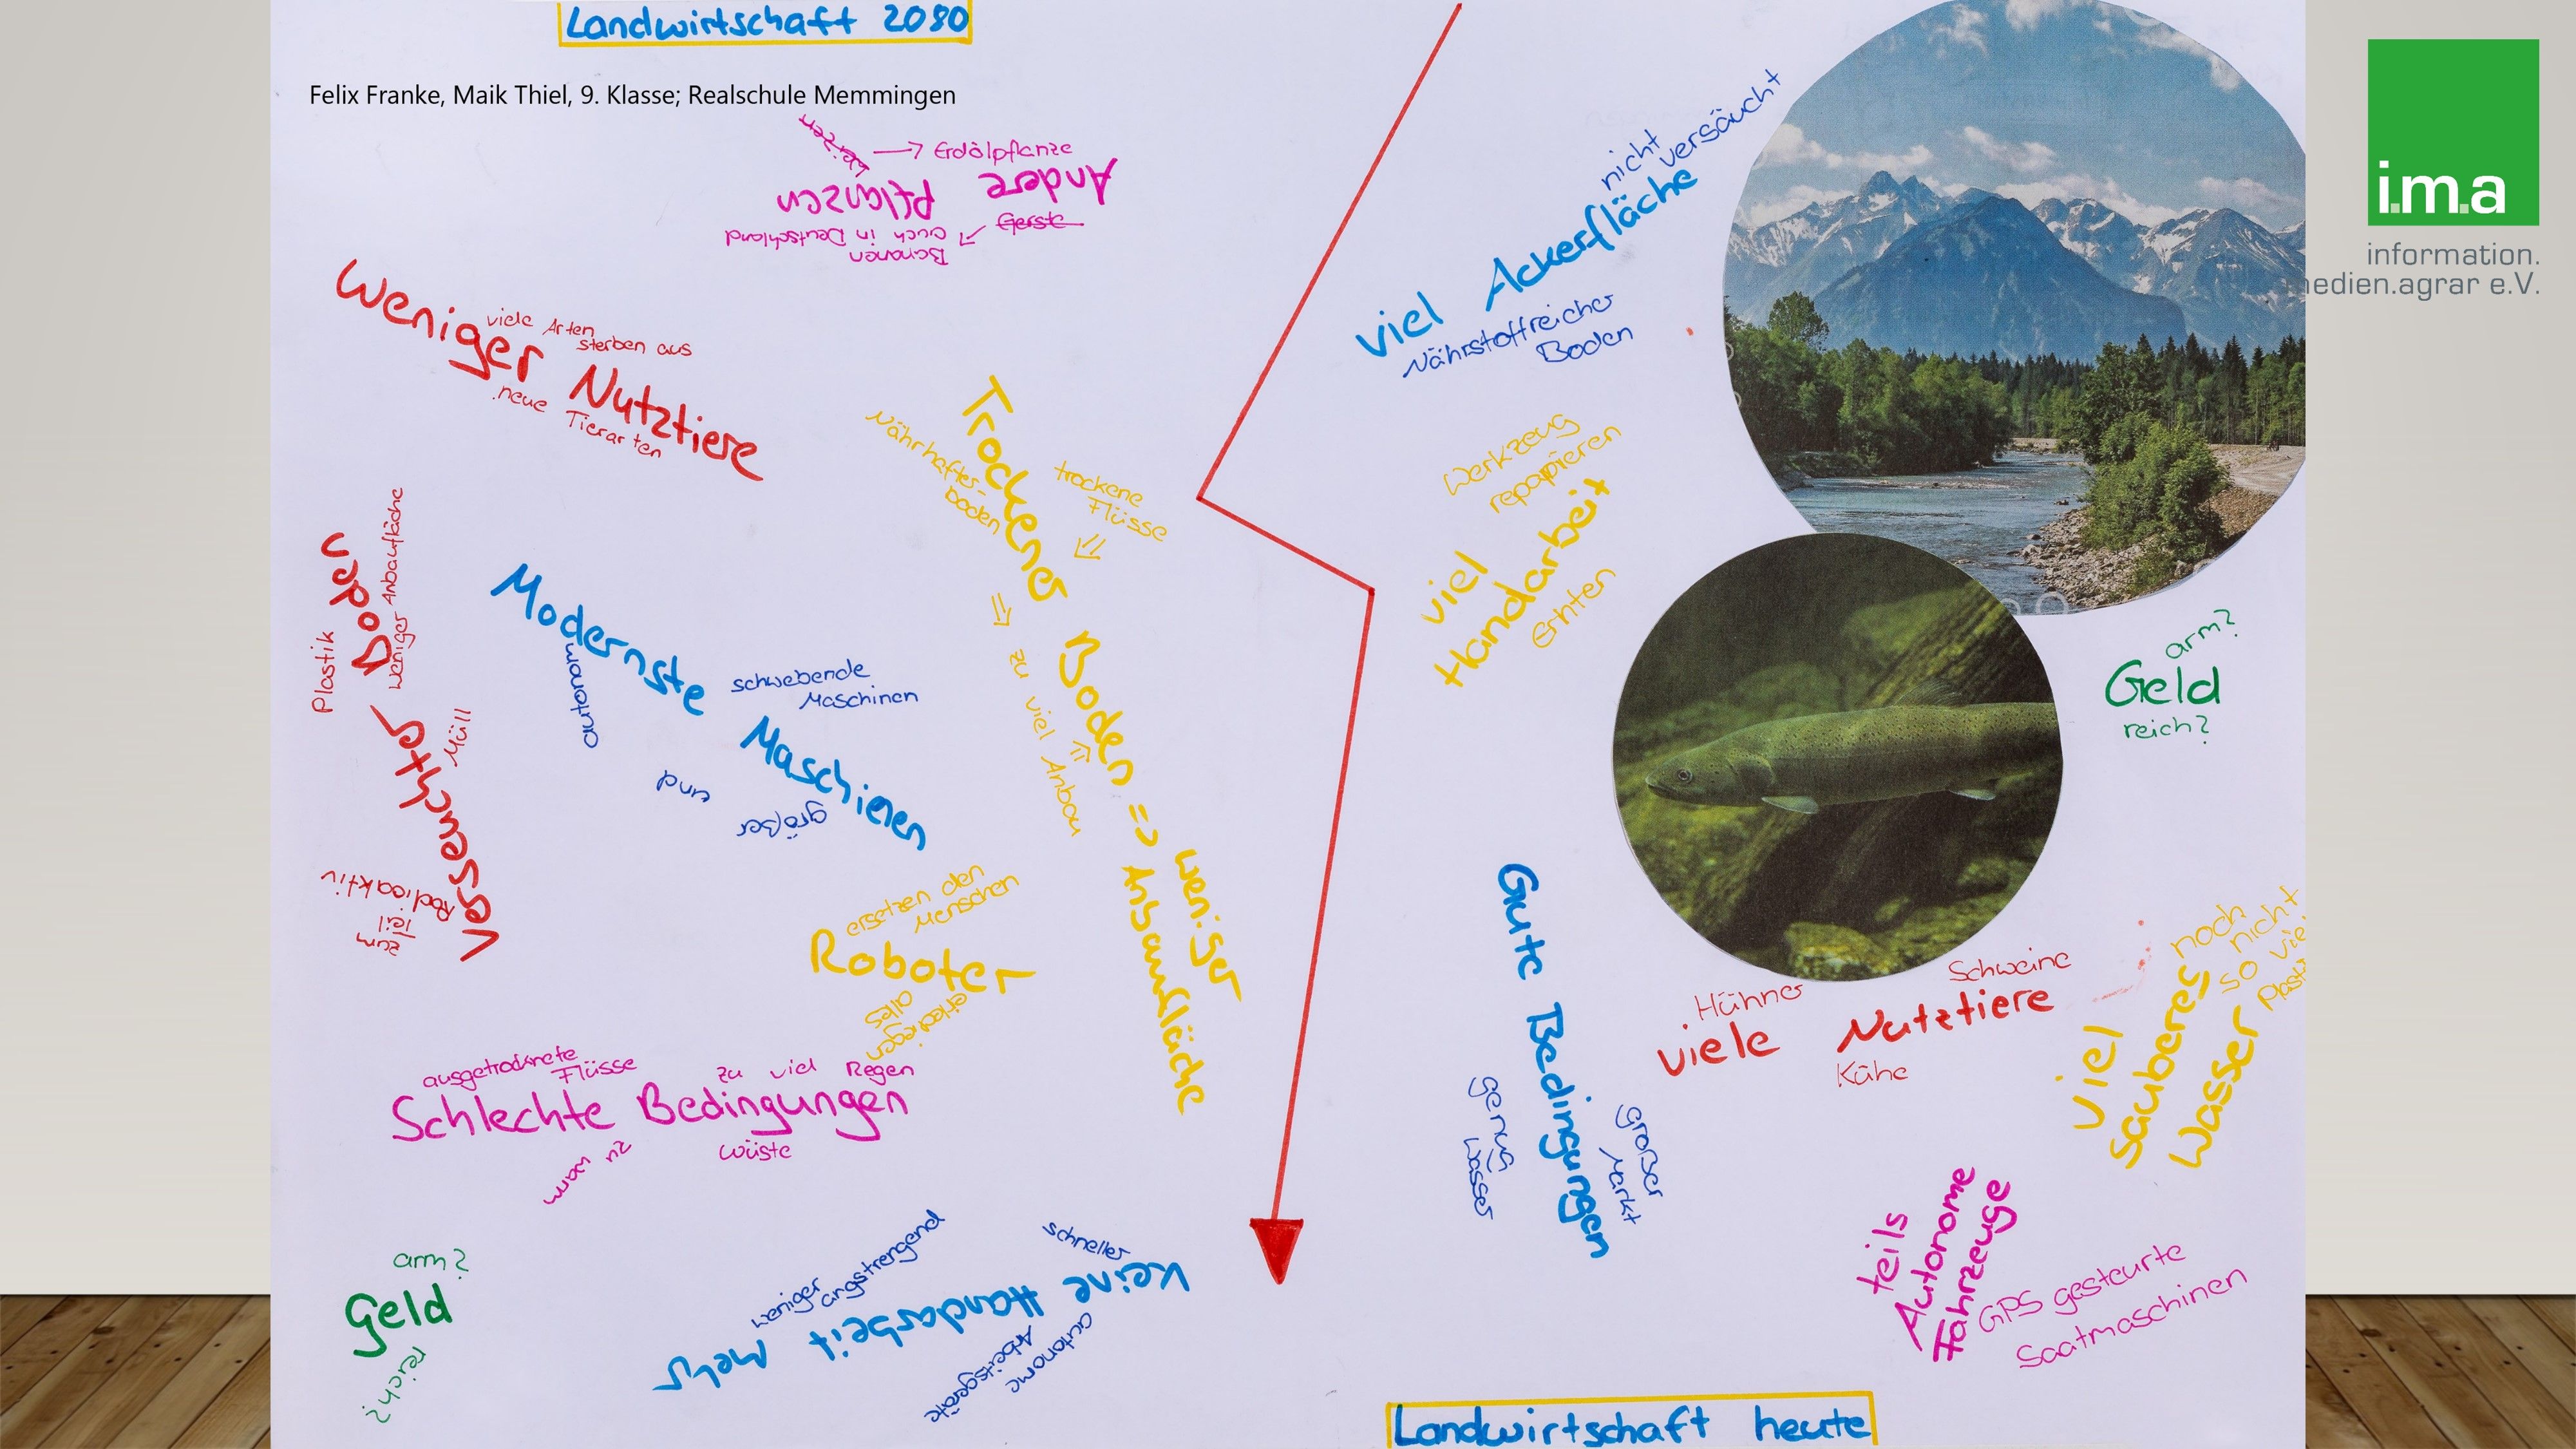 Landwirtschaft 2080
Felix Franke, Maik Thiel, 9. Klasse; Realschule Memmingen
→ Erdölpflanze
Andere Pflanzen
Gerste
Bananen
auch in Deutschland
Weniger Nutztiere
viele Arten
sterben aus
neue Tierarten
Trockener Boden => weniger
Anbaufläche
Nährhafter-
boden
trockene
Flüsse
zu viel Anbau
Verseuchter Boden
weniger Anbaufläche
Plastik
Müll
zum
Teil
Radioaktiv
Modernste Maschienen
schwebende
Maschinen
autonom
und
größer
ersetzen den
Menschen
Roboter
erledigen
alles
ausgetroknete
Flüsse
zu viel Regen
Schlechte Bedingungen
zu warm
wüste
arm?
Geld
reich?
Keine Handarbeit mehr
schneller
weniger
angstrengend
autonome
Arbeitsgeräte
nicht
versäucht
viel Ackerfläche
Nährstoffreicher
Boden
Werkzeug
repapieren
viel
Handarbeit
Ernten
arm?
Geld
reich?
Gute Bedingungen
genug
Wasser
großer
Markt
Hühner
Schweine
viele Nutztiere
Kühe
viel
sauberes
Wasser
noch
nicht
so
teils
Autonome
Fahrzeuge
GPS gesteurte
Saatmaschinen
Landwirtschaft heute
i.m.a
information.
medien.agrar e.V.